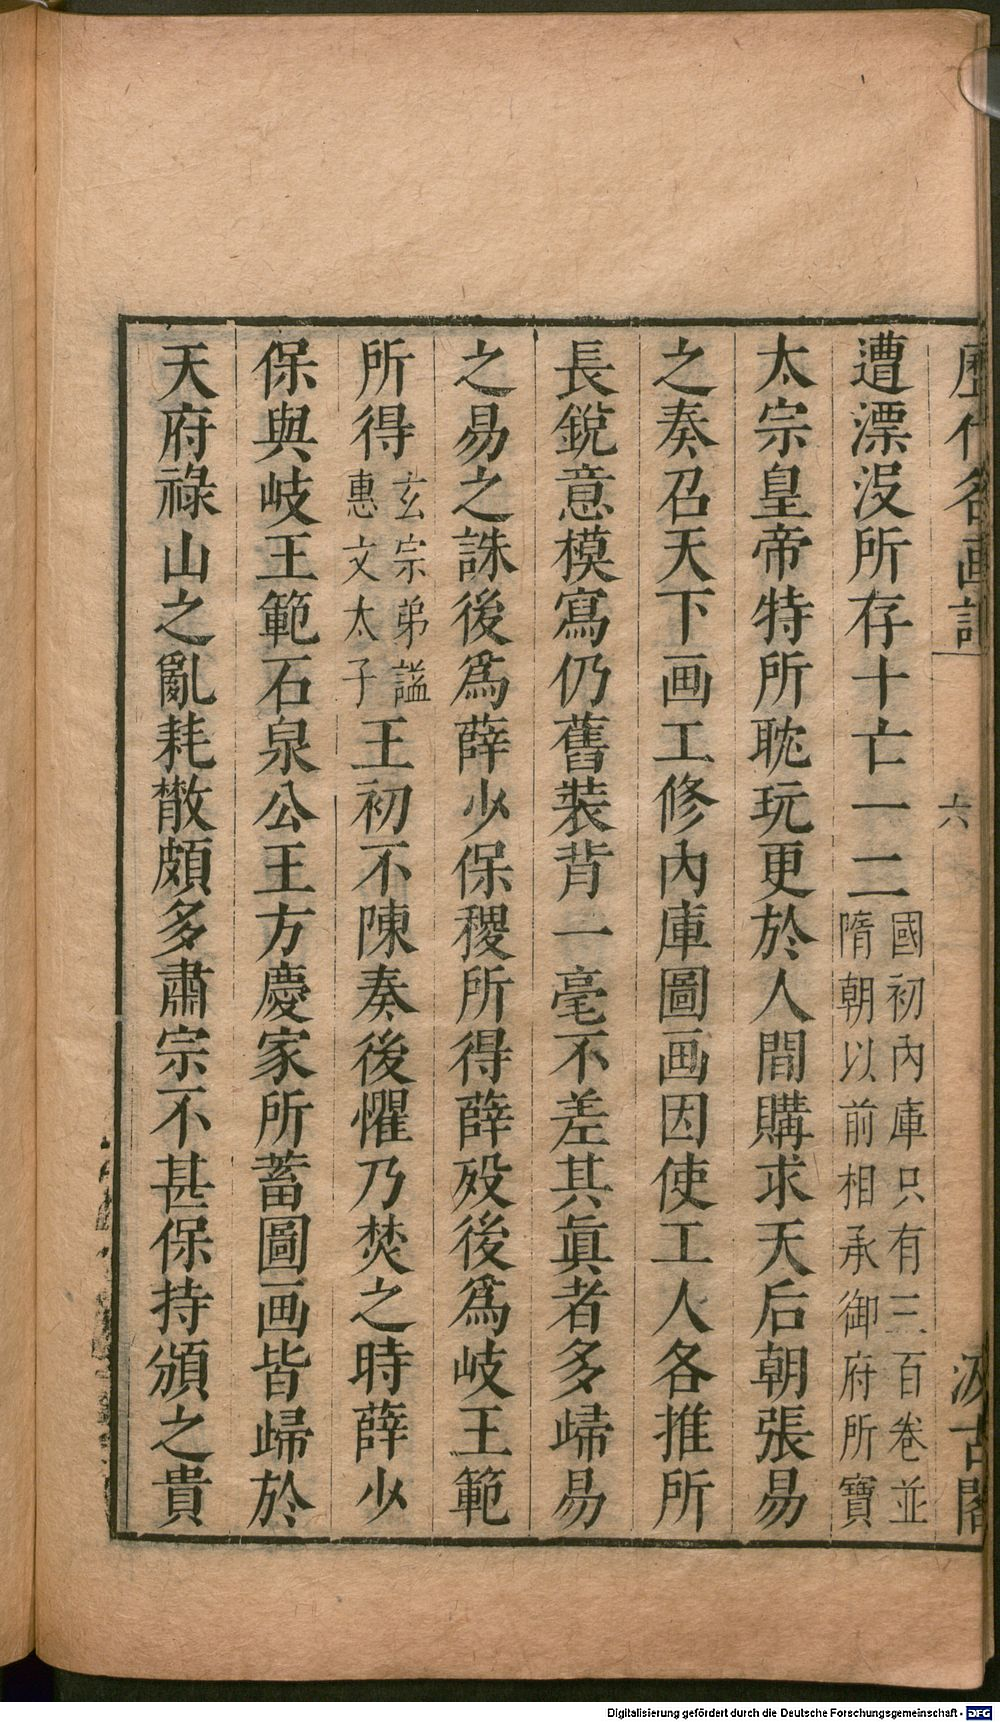 歷代名画記
六
汲古閣
遭漂沒所存十亡一二國初內庫只有三百卷並隋朝以前相承御府所寶
太宗皇帝特所耽玩更於人間購求天后朝張易
之奏召天下画工修內庫圖画因使工人各推所
長銳意模寫仍舊装背一毫不差其眞者多歸易
之易之誅後爲薛少保稷所得薛歿後爲岐王範
所得玄宗弟謚惠文太子王初不陳奏後懼乃焚之時薛少
保與岐王範石泉公王方慶家所蓄圖画皆歸於
天府祿山之亂耗散頗多肅宗不甚保持頒之貴
Digitalisierung gefördert durch die Deutsche Forschungsgemeinschaft - DFG